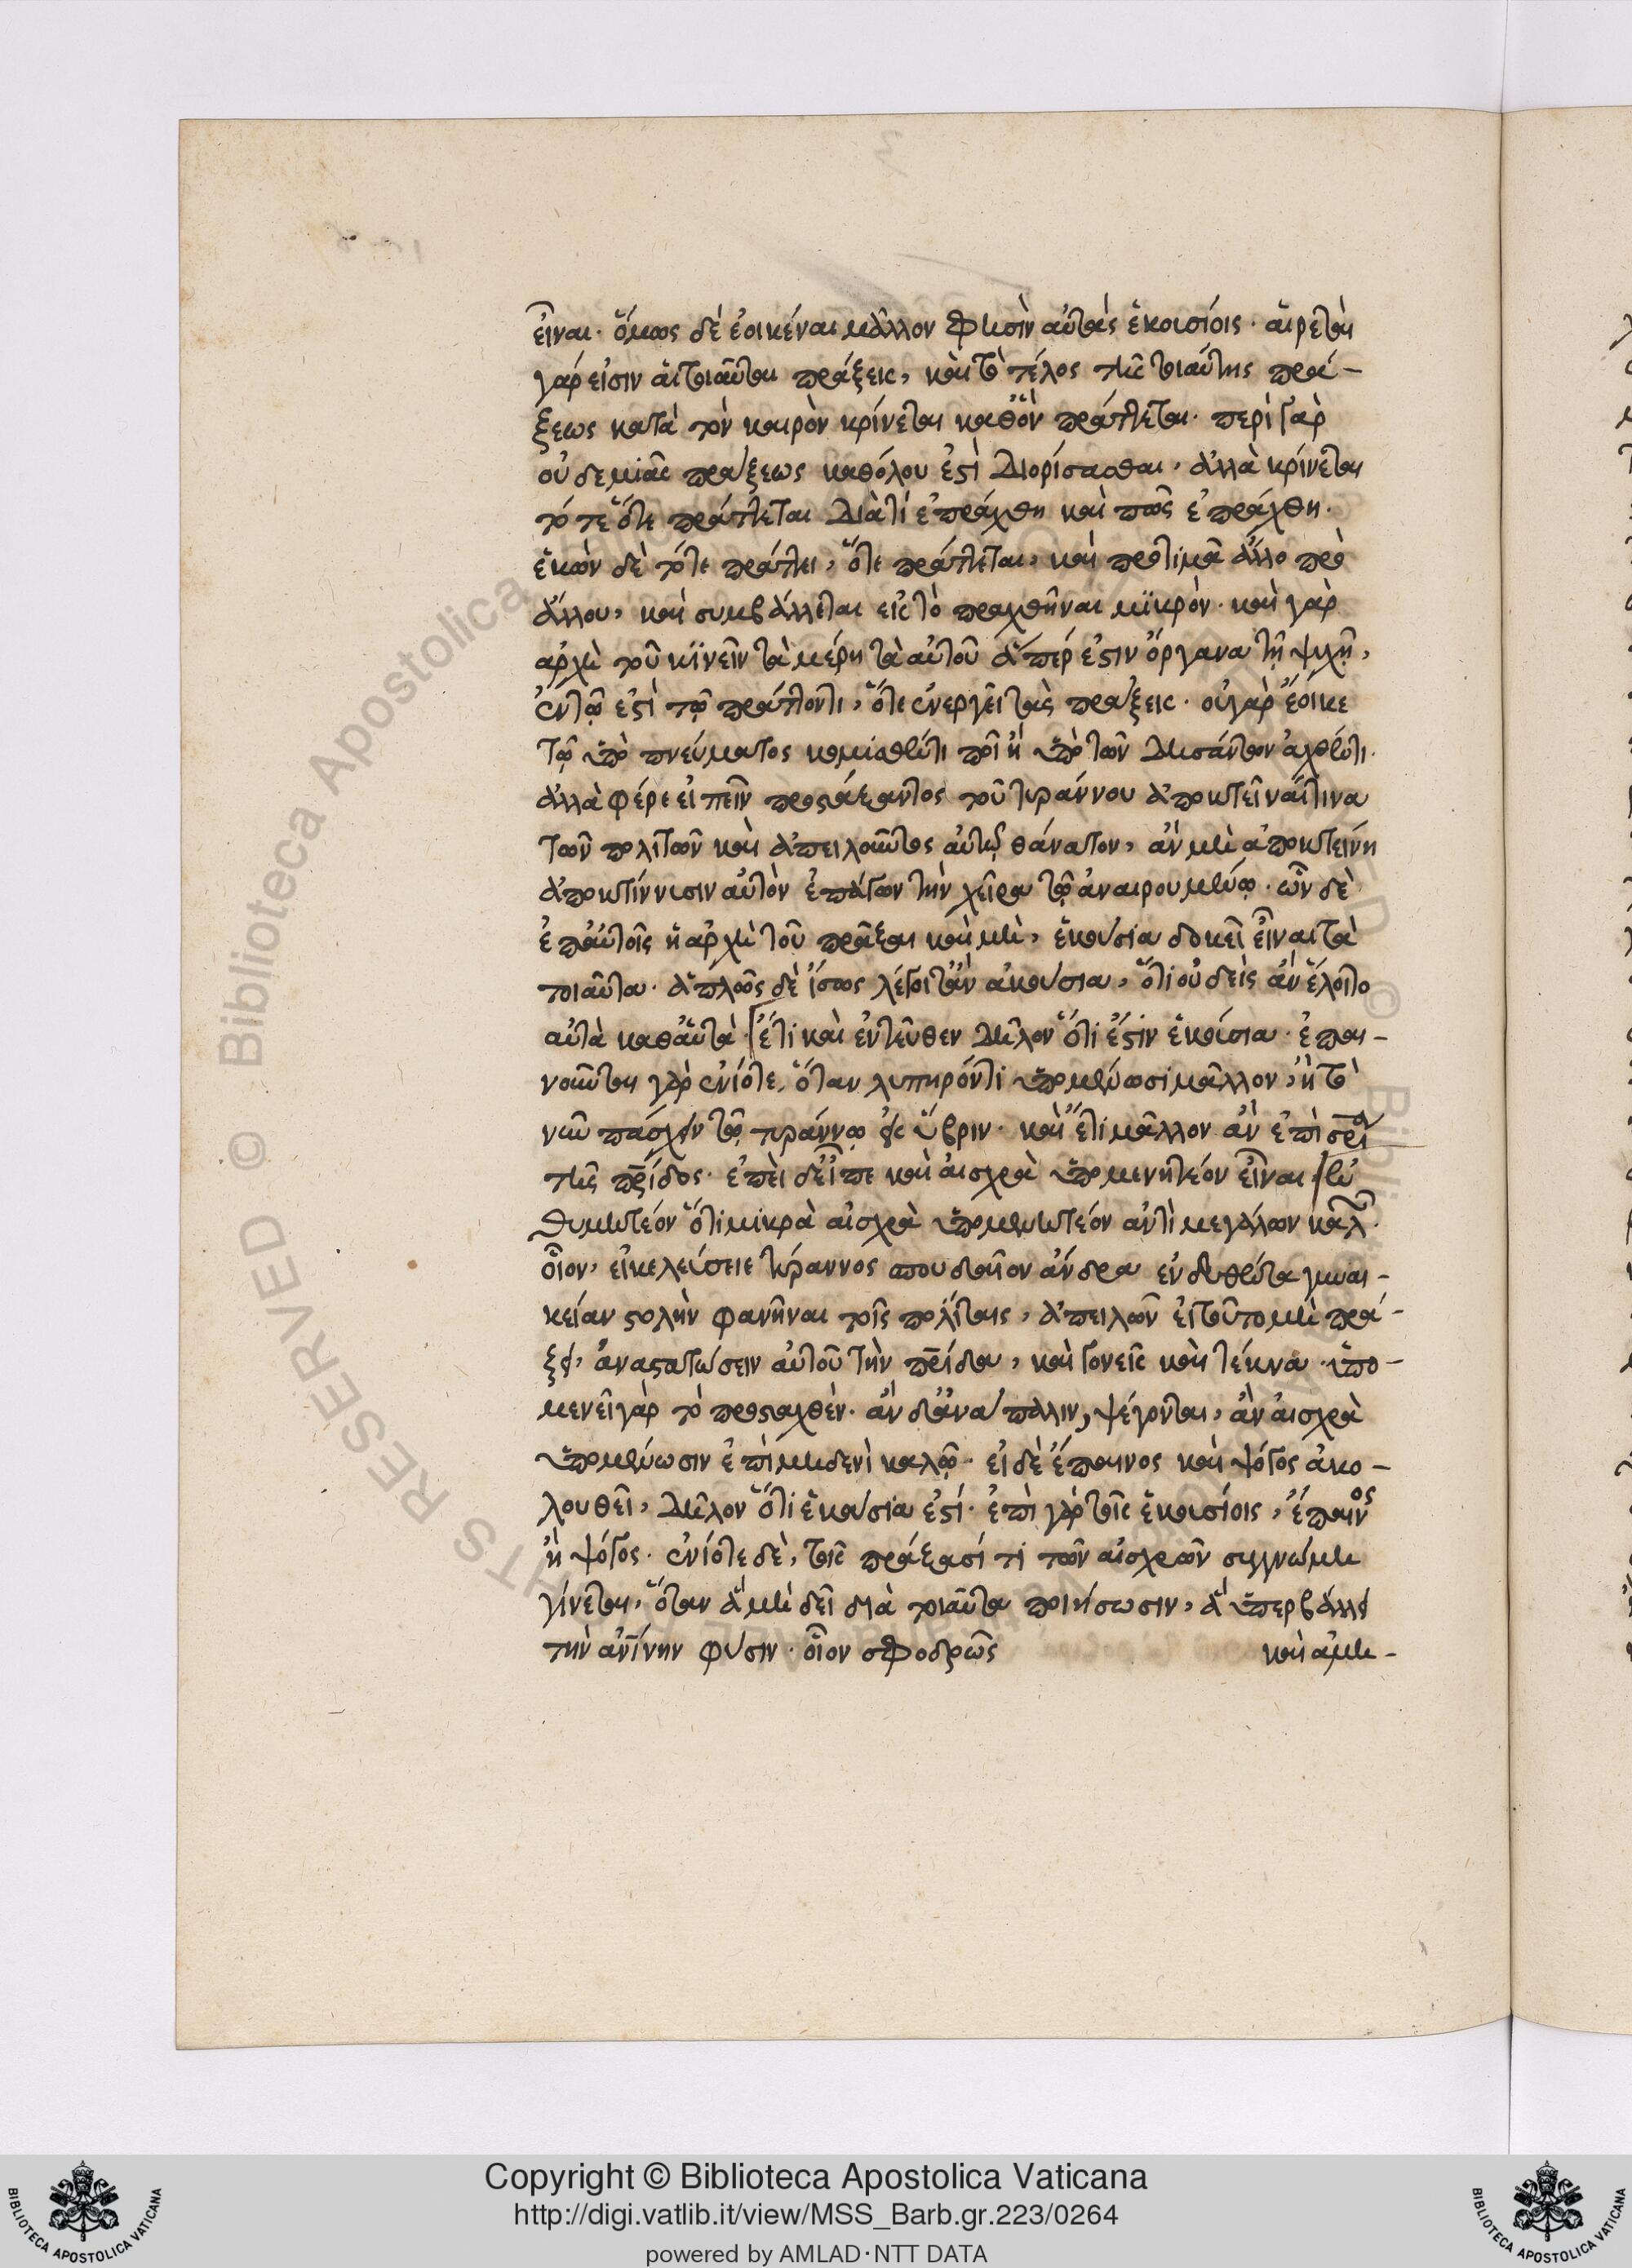 εἶναι. ὅμως δὲ ἐοικέναι μᾶλλον φησὶν αὐτὰς ἑκουσίοις. αἱρεταὶ
γάρ εἰσιν αἱ τοιαῦται πράξεις, καὶ τὸ τέλος τῆς τοιαύτης πρά-
ξεως κατὰ τὸν καιρὸν κρίνεται καθ' ὃν πράττεται. περὶ γὰρ
οὐδεμιᾶς πράξεως καθόλου ἐστὶ διορίσασθαι, ἀλλὰ κρίνεται
τότε ὅτε πράττεται διὰ τί ἐπράχθη καὶ πῶς ἐπράχθη.
ἑκὼν δὲ τότε πράττει, ὅτε πράττεται, καὶ προτιμᾷ ἄλλο πρὸ
ἄλλου, καὶ συμβάλλεται εἰς τὸ πραχθῆναι μικρὸν. καὶ γὰρ
ἀρχὴ τοῦ κινεῖν τὰ μέρη τὰ αὐτοῦ ἅπερ ἐστιν ὄργανα τῇ ψυχῇ,
ἐν τῷ ἐστὶ τῷ πράττοντι, ὅτε ἐνεργεῖ τὰς πράξεις. οὐ γὰρ ἔοικε
τῷ ὑπὸ πνεύματος κομισθέντι ποῖ ἢ ὑπὸ τῶν δησάντων ἀχθέντι.
ἀλλὰ φέρε εἰπεῖν προστάξαντος τοῦ τυράννου ἀποκτεῖναί τινα
τῶν πολιτῶν καὶ ἀπειλοῦντος αὐτῷ θάνατον, ἂν μὴ ἀποκτείνη
ἀποκτίννυσιν αὐτὸν ἐπάγων τὴν χεῖρα τῷ ἀναιρουμένῳ. ὧν δὲ
ἐπ' αὐτοῖς ἡ ἀρχὴ τοῦ πρᾶξαι καὶ μὴ, ἑκούσια δοκεῖ εἶναι τὰ
τοιαῦτα. ἁπλῶς δὲ ἴσως λέγοιτ' ἂν ἀκούσια, ὅτι οὐδεὶς ἂν ἕλοιτο
αὐτὰ καθ' αὑτὰ. ἔτι καὶ ἐντεῦθεν δῆλον ὅτι ἐστὶν ἑκούσια. ἐπαι-
νοῦνται γὰρ ἐνίοτε, ὅταν λυπηρόν τι ὑπομένωσι μᾶλλον, ἢ τὸ
νῦν πάσχειν τῷ τυράννῳ εἰς ὕβριν. καὶ ἔτι μᾶλλον ἂν ἐπὶ
τῆς πρίδος. ἐπεὶ δὲ εἶπε καὶ αἰσχρὰ ὑπομενητέον εἶναι. ἐν
θυμητέον ὅτι μικρὰ αἰσχρὰ ὑπομενητέον ἀντὶ μεγάλων καλ.
οἷον, εἰ κελεύσειε τύραννος σπουδαῖον ἄνδρα ἐνδυθέντα γυναι-
κείαν στολὴν φανῆναι τοῖς πολίταις, ἀπειλῶν εἰ τοῦτο μὴ πρά-
ξει, ἀναστατώσειν αὐτοῦ τὴν πρίδα, καὶ γονεῖς καὶ τέκνα. ὑπο-
μενεῖ γὰρ τὸ προσταχθὲν. ἂν δ' ἀνάπαλιν, ψέγονται, ἂν αἰσχρὰ
ὑπομένωσιν ἐπὶ μηδενὶ καλῷ. εἰ δὲ ἔπαινος καὶ ψόγος ἀκο-
λουθεῖ, δῆλον ὅτι ἑκούσια ἐστί. ἐπὶ γὰρ τοῖς ἑκουσίοις, ἔπαινος
ἢ ψόγος. ἐνίοτε δὲ, τοῖς πράξασί τι τῶν αἰσχρῶν συγγνώμη
γίνεται, ὅταν ἃ μὴ δεῖ διὰ τοιαῦτα ποιήσωσιν, ἃ ὑπερβάλλει
τὴν ἀνίνην φύσιν. οἷον σφοδρῶς καὶ ἀμη-